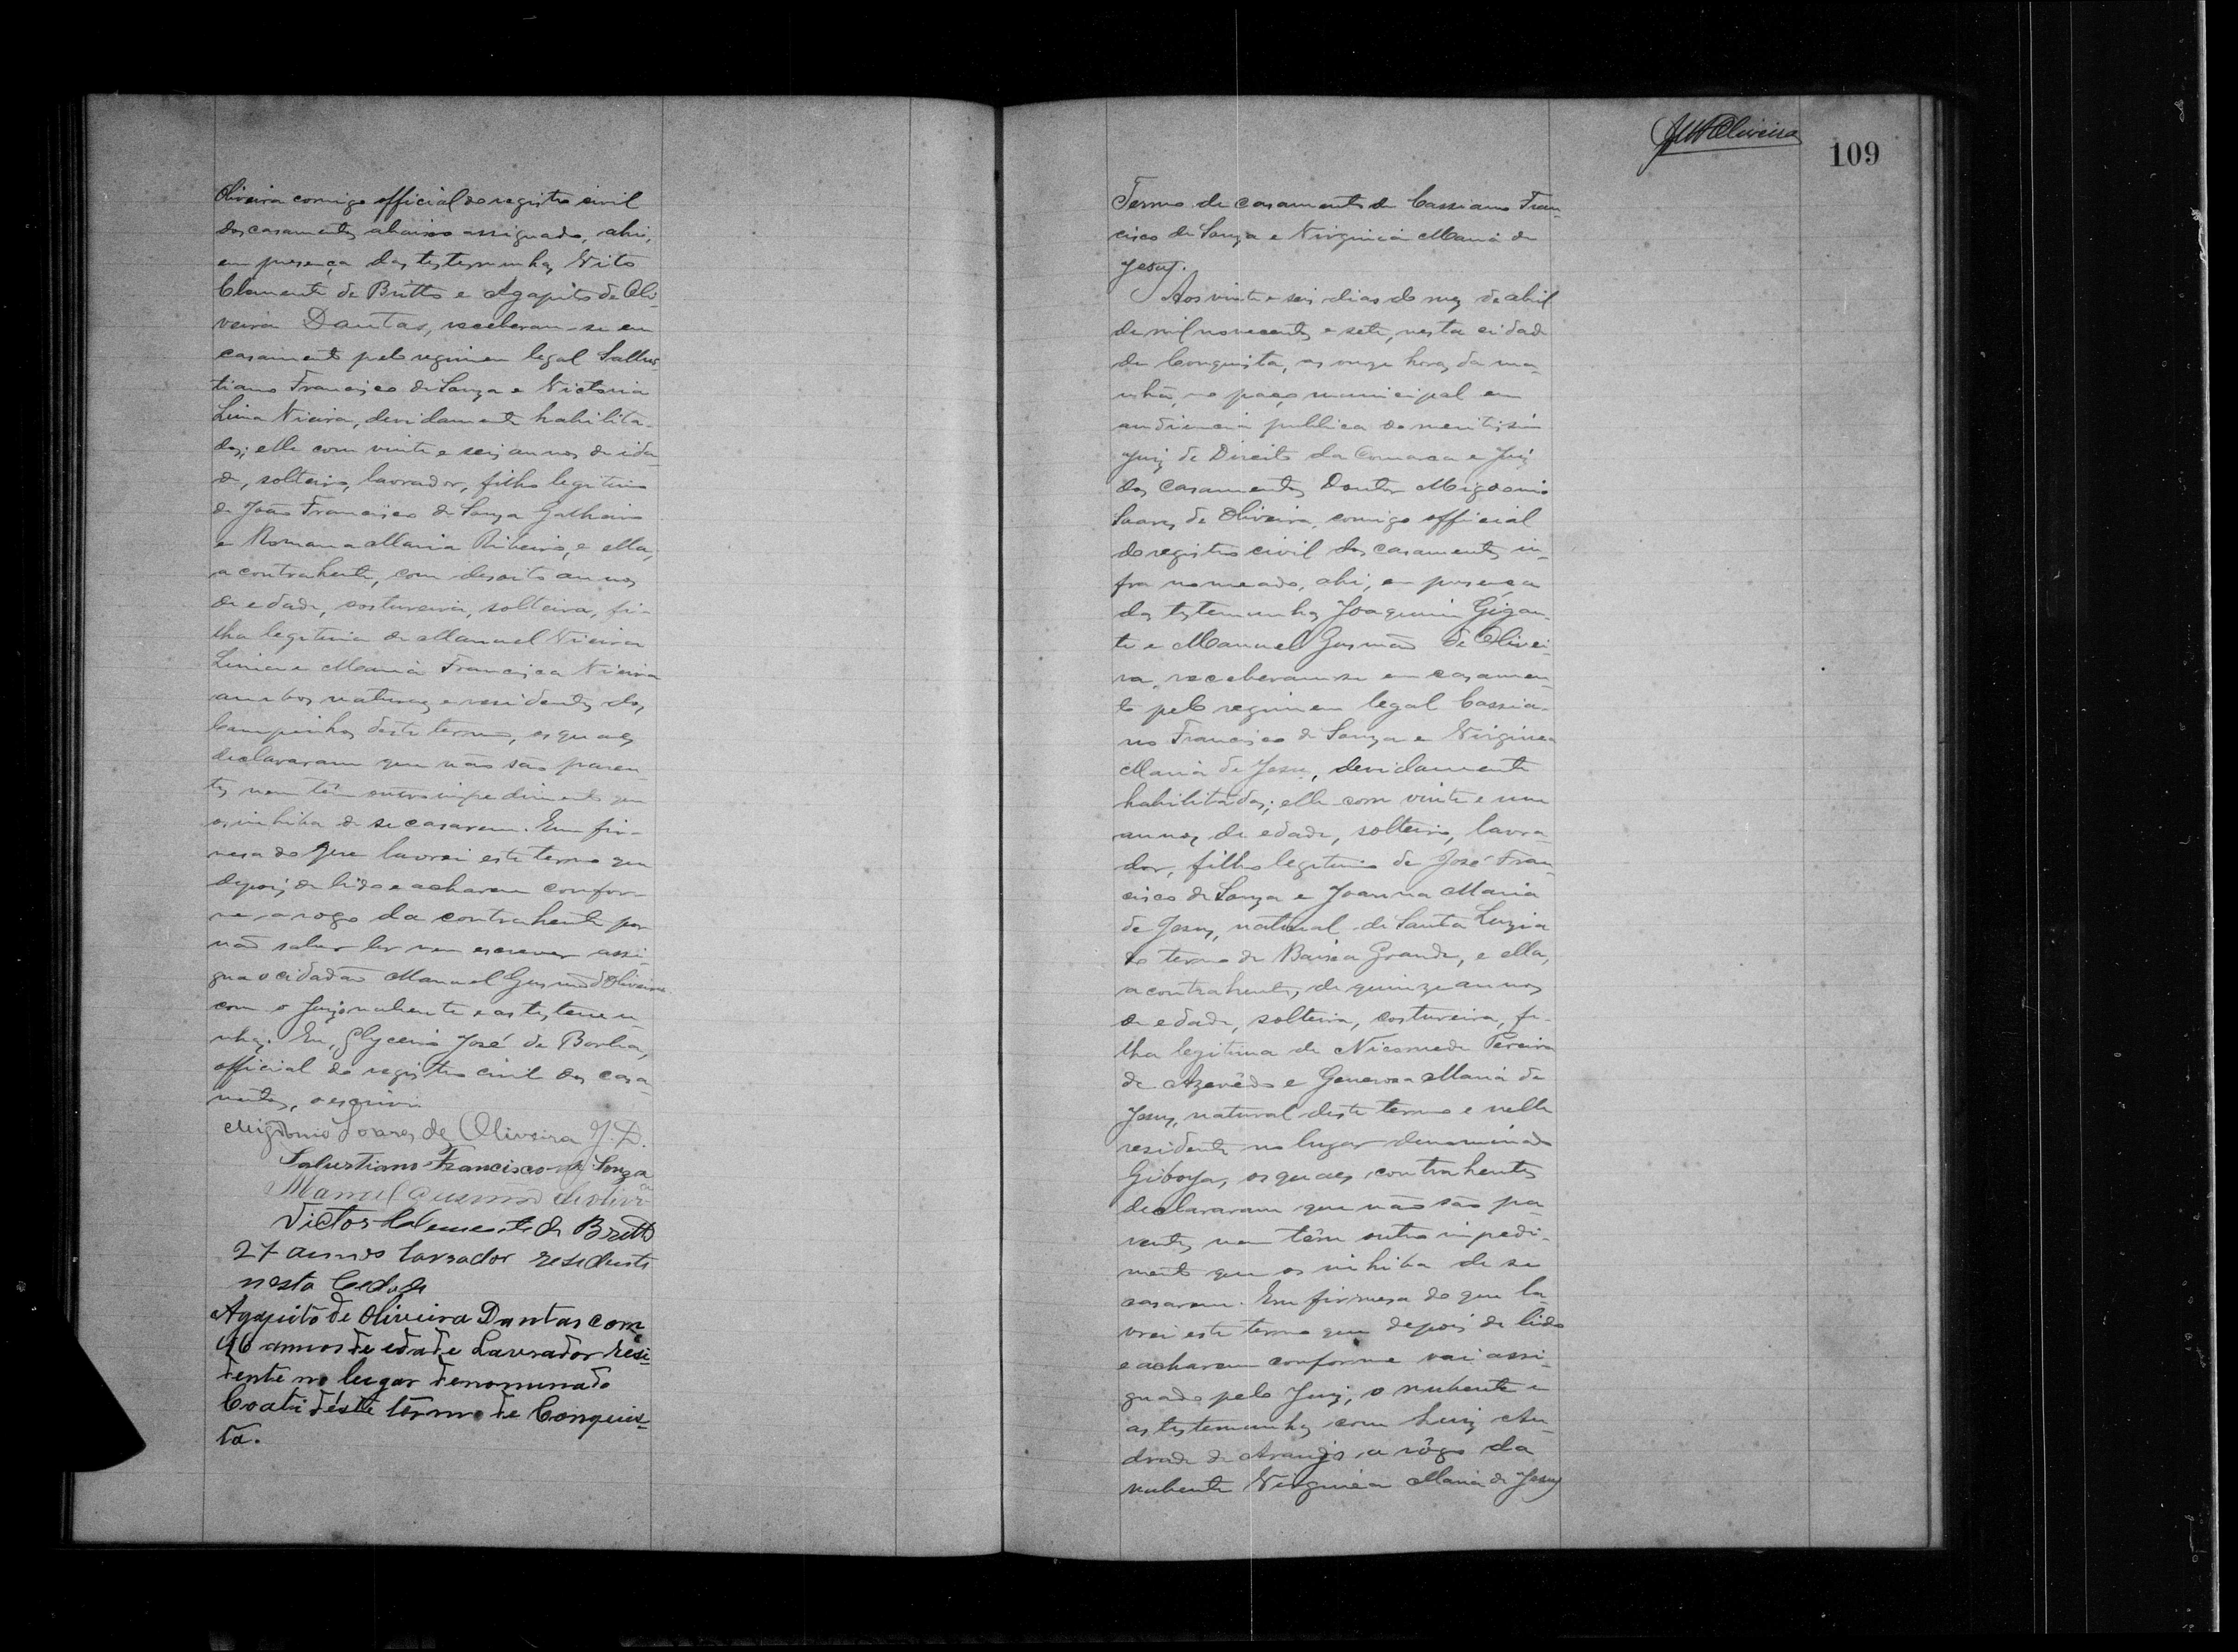 Oliveira comigo official do registro civil
dos casamentos abaixo assignado, ahi,
em presença das testemunhas Vito
Clemente de Britto e Agapito de Oli-
veira Dantas, receberam-se em
casamento pelo regimen legal Sallus-
tiano Francisco de Souza e Victoria
Lima Vieira, devidamente habilita-
dos; elle com vinte e seis annos de ida-
de, solteiro, lavrador, filho legitimo
de João Francisco de Souza
e Romana Maria Ribeiro, e ella,
a contrahente, com desoito annos
de edade, costureira, solteira, fi-
lha legitima de Manuel Vieira
Lima e Maria Francisca Vieira
ambos naturaes e residentes dos
Campinhos deste termo, os quaes
declararam que não são paren-
tes nem têm outro impedimento que
os inhiba de se casarem. Em fir-
mesa do que lavrei este termo que
depois de lido e acharem confor-
me, a rogo da contrahente por
não saber ler nem escrever assi-
gna o cidadão Manuel Gusmão d'Oliveira
com o Juiz nubente e as testemu-
nhas. Eu, Glycerio José de Borba,
official do registro civil dos casa-
mentos, o escrevi
Migdonio Soares de Oliveira J. D.
Salustiano Francisco de Souza
Manuel Gusmão de Olivrª
Victor Clemente de Britto
27 annos lavrador residente
nesta Cidade
Agapito de Oliveira Dantas com
46 annos de edade Lavrador resi-
dente no lugar denominado
Coati déste têrmo de Conquis-
ta.
Oliveira
109
Termo de casamento de Cassiano Fran-
cisco de Souza e Virginia Maria de
Jesus.
Aos vinte e seis dias do mez de abril
de mil novecentos e sete, nesta cidade
de Conquista, as onze horas da ma-
nhã, no paço municipal em
audiencia publica do meritissimo
Juiz de Direito da Comarca e Juiz
dos Casamentos Doutor Migdonio
Soares de Oliveira, comigo official
do registro civil dos casamentos in-
fra nomeado, ahi, em presença
das testemunhas Joaquim Gigan-
te e Manuel Gusmão de Olivei-
ra, receberam-se em casamen-
to pelo regimen legal Cassia-
no Francisco de Souza e Virginia
Maria de Jesus, devidamente
habilitados; elle com vinte e um
annos de edade, solteiro, lavra-
dor, filho legitimo de José Fran-
cisco de Souza e Joanna Maria
de Jesus, natural de Santa Luzia
do termo de Baixa Grande, e ella,
a contrahente, de quinze annos
de edade, solteira, costureira, fi-
lha legitima de Nicomede Pereira
de Azevêdo e Generosa Maria de
Jesus, natural deste termo e nelle
residente no lugar denominado
Giboya, os quaes contrahentes
declararam que não são pa-
rentes nem têm outro impedi-
mento que os inhiba de se
casarem. Em firmesa do que la-
vrei este termo que depois de lido
e acharem conforme vai assi-
gnado pelo Juiz, o nubente e
as testemunhas com Luiz An-
drade de Araujo a rôgo da
nubente Virginia Maria de Jesus